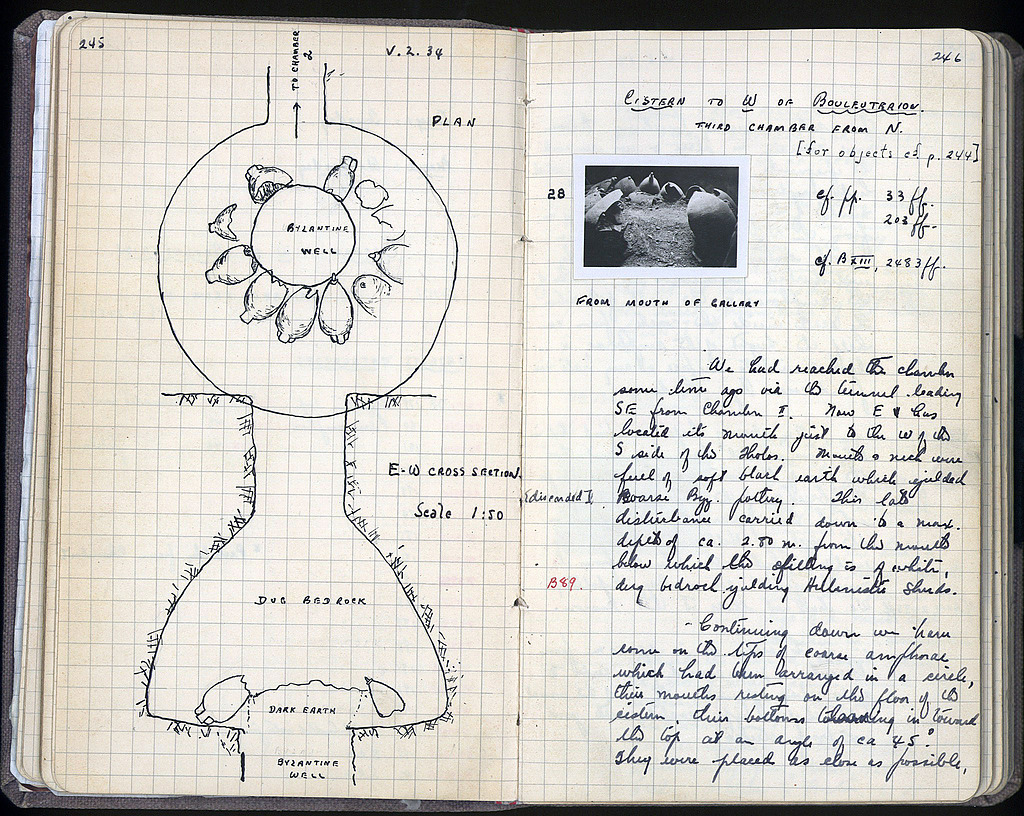 245
V. 2. 34
TO CHAMBER
2
PLAN
BYZANTINE
WELL
E-W CROSS SECTION.
Scale 1:50
DUG BEDROCK
DARK EARTH
BYZANTINE
WELL
246
CISTERN TO W OF BOULEUTERION.
THIRD CHAMBER FROM N.
[for objects cf p. 244]
28
cf. pp. 33 ff.
203 ff.
cf. B XIII, 2483 ff.
FROM MOUTH OF GALLARY
We had reached the chamber
some time ago via the tunnel leading
SE from Chamber II. Now E has
located its mouth just to the W of the
S side of the Tholos. Mouth & neck were
full of soft black earth which yielded
[discarded] coarse Byz. pottery. This late
disturbance carried down to a max.
depth of ca. 2.80 m. from the mouth
below which the filling is of white,
B89. dug bedrock yielding Hellenistic sherds.
- Continuing down we have
come on the tips of coarse amphorae
which had been arranged in a circle,
their mouths resting on the floor of the
cistern, their bottoms in toward
the top at an angle of ca 45°.
They were placed as close as possible,